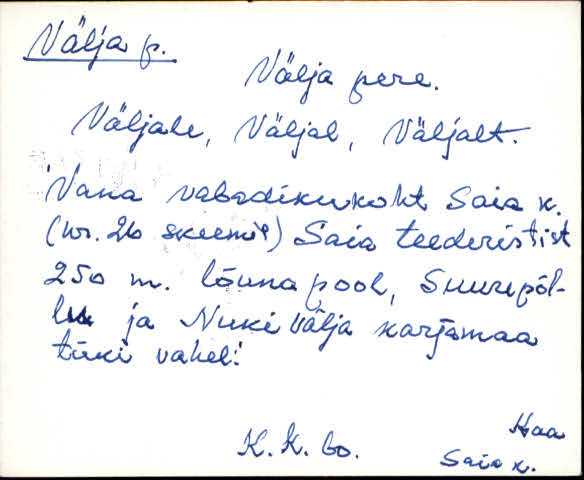 Välja p.
Välja pere.
Väljale, Väljal, Väljalt.
Vana vabadikukoht Saia k.
(nr. 26 skeemil) Saia teederistist
250 m. lõuna pool, Suurepõl-
lu ja Nuki Välja karjamaa
tüki vahel.
K. K. 60.
Haa
Saia k.